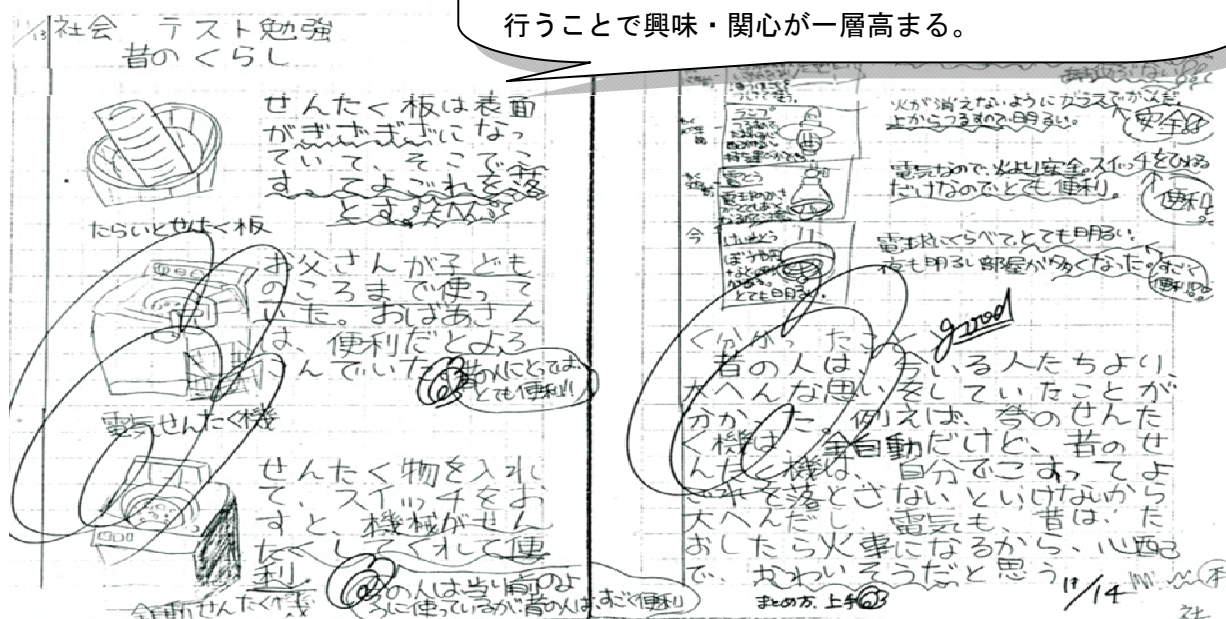 行うことで興味・関心が一層高まる。
11/13
社会 テスト勉強
昔のくらし
せんたく板は表面
がぎざぎざになっ
ていて、そこでこ
すってよごれを落
とす。
たらいとせんたく板
お父さんが子ども
のころまで使って
いた。おばあさん
は、便利だとよろ
こんでいた
昔の人にとっては、
とても便利!!
電気せんたく機
せんたく物を入れ
て、スイッチをお
すと、機械がせん
たくしてくれて便
利
の人は当り前のよ
うに使っているが昔の人は、すごく便利
全自動せんたく機
火が消えないようにガラスでかこんだ。
上からつるすので明るい。
安全
ランプ
電気なので、火より安全。スイッチをひねる
だけなのでとても便利。
便利
電とう
今
けいこうとう
とても明るい。
電球にくらべて、とても明るい。
夜も明るい部屋が多くなった。
すごく
便利
good
くわかったこと
昔の人は、今いる人たちより、
大へんな思いをしていたことが
分かった。例えば、今のせんた
く機は、全自動だけど、昔のせ
んたく機は、自分でこすってよ
ごれを落とさないといけないから
大へんだし、電気も、昔は、た
おしたら火事になるから、心配
で、かわいそうだと思う
まとめ方、上手
11/14
社